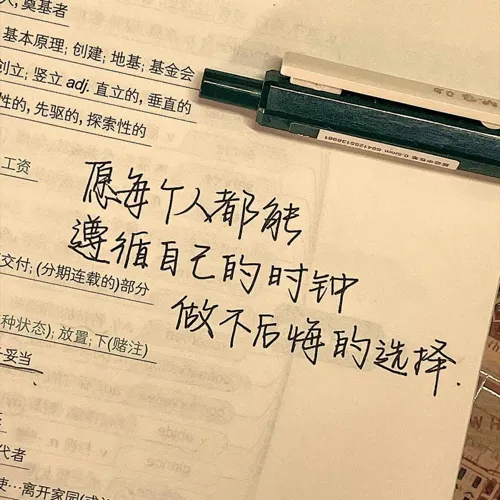 人，奠基者
基本原理; 创建; 地基; 基金会
创立; 竖立 adj. 直立的, 垂直的
性的, 先驱的, 探索性的
工资
愿每个人都能
遵循自己的时钟
做不后悔的选择.
交付; (分期连载的)部分
种状态); 放置; 下(赌注)
妥当
代者
使…离开家园(或
0.5mm 6941205138081